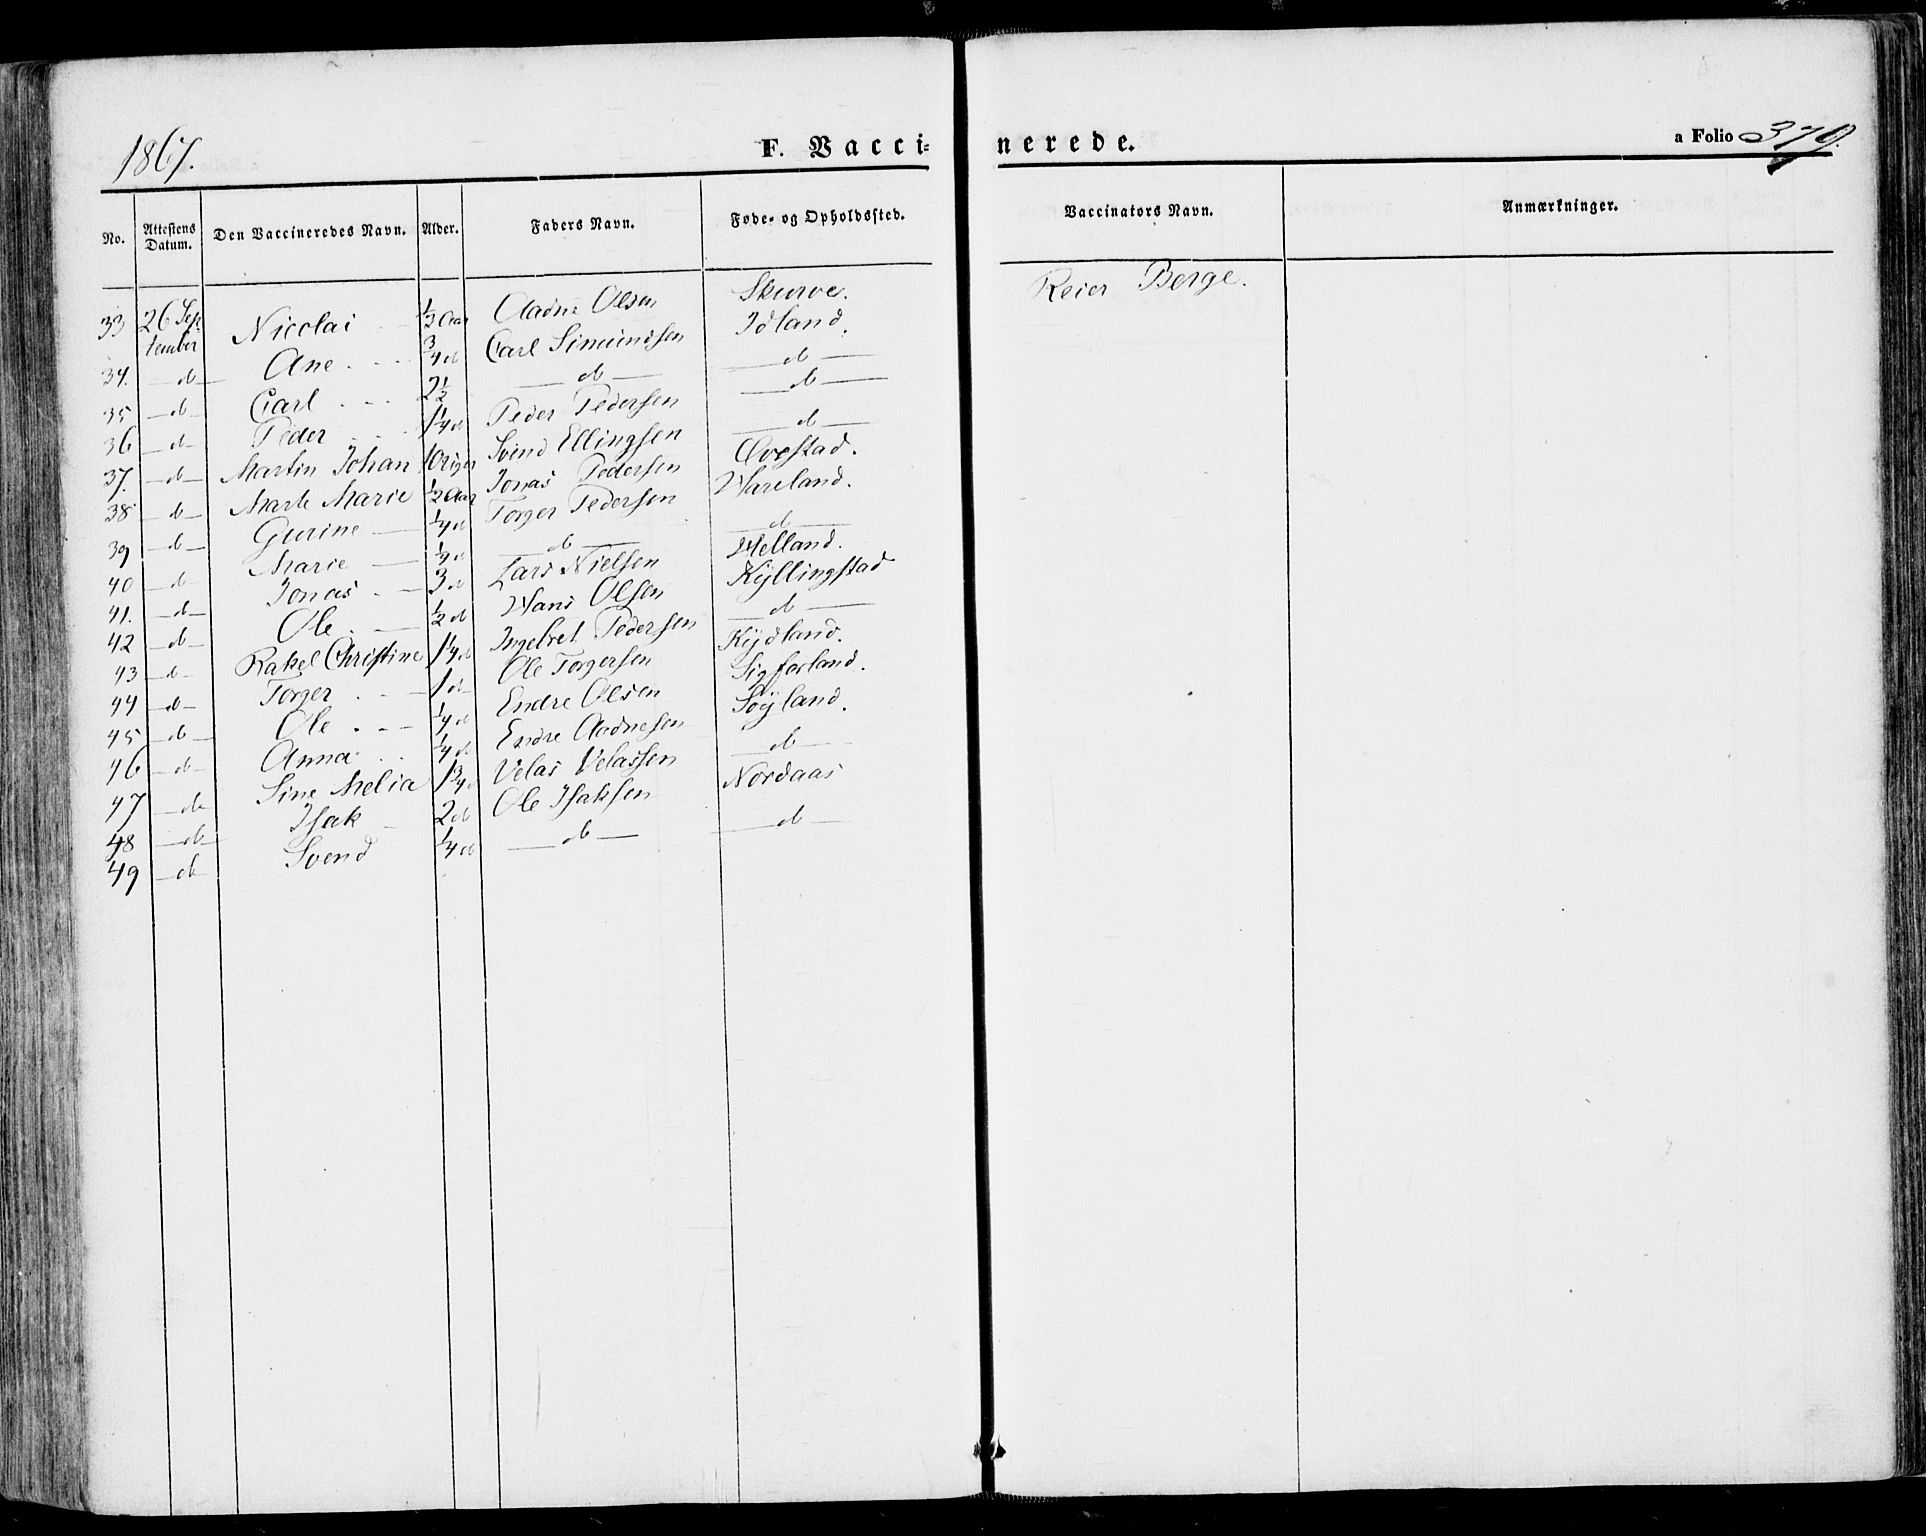 1867. F. Vacci= nerede. a Folio 379.
No. Attestens Datum. Den Vaccineredes Navn. Alder. Faders Navn. Føde- og Opholdssted. Vaccinators Navn. Anmærkninger.
33 26 Sep tember Nicolai ½ Aar Aadne Olsen Skurve. Reier Berge.
34. d Ane ¾ d Carl Simundsen Idland.
35 d Carl 2½ d d
36 d Peder 1¼ d Peder Pedersen d
37. d Martin Johan 10 Uger Svend Ellingsen d
38 d Marte Marie ½ Aar Jonas Pedersen Ovestad.
39 d Gurine ¼ d Torger Pedersen Hareland.
40 d Marie ¼ d d d
41. d Jonas 3 d Lars Nielsen Helland.
42 d Ole ½ d Hans Olsen Kyllingstad
43 d Rakel Christine 1¼ d Ingebret Pedersen d
44 d Torger 1 d Ole Torgersen Kydland.
45 d Ole ¼ d Endre Olsen
46 d Anna ¼ d Endre Aadnesen Søyland.
47 d Sine Melia 1¾ d Velas Velassen d
48 d Isak 2 d Ole Isaksen Nordaas
49 d Svend ¼ d d d